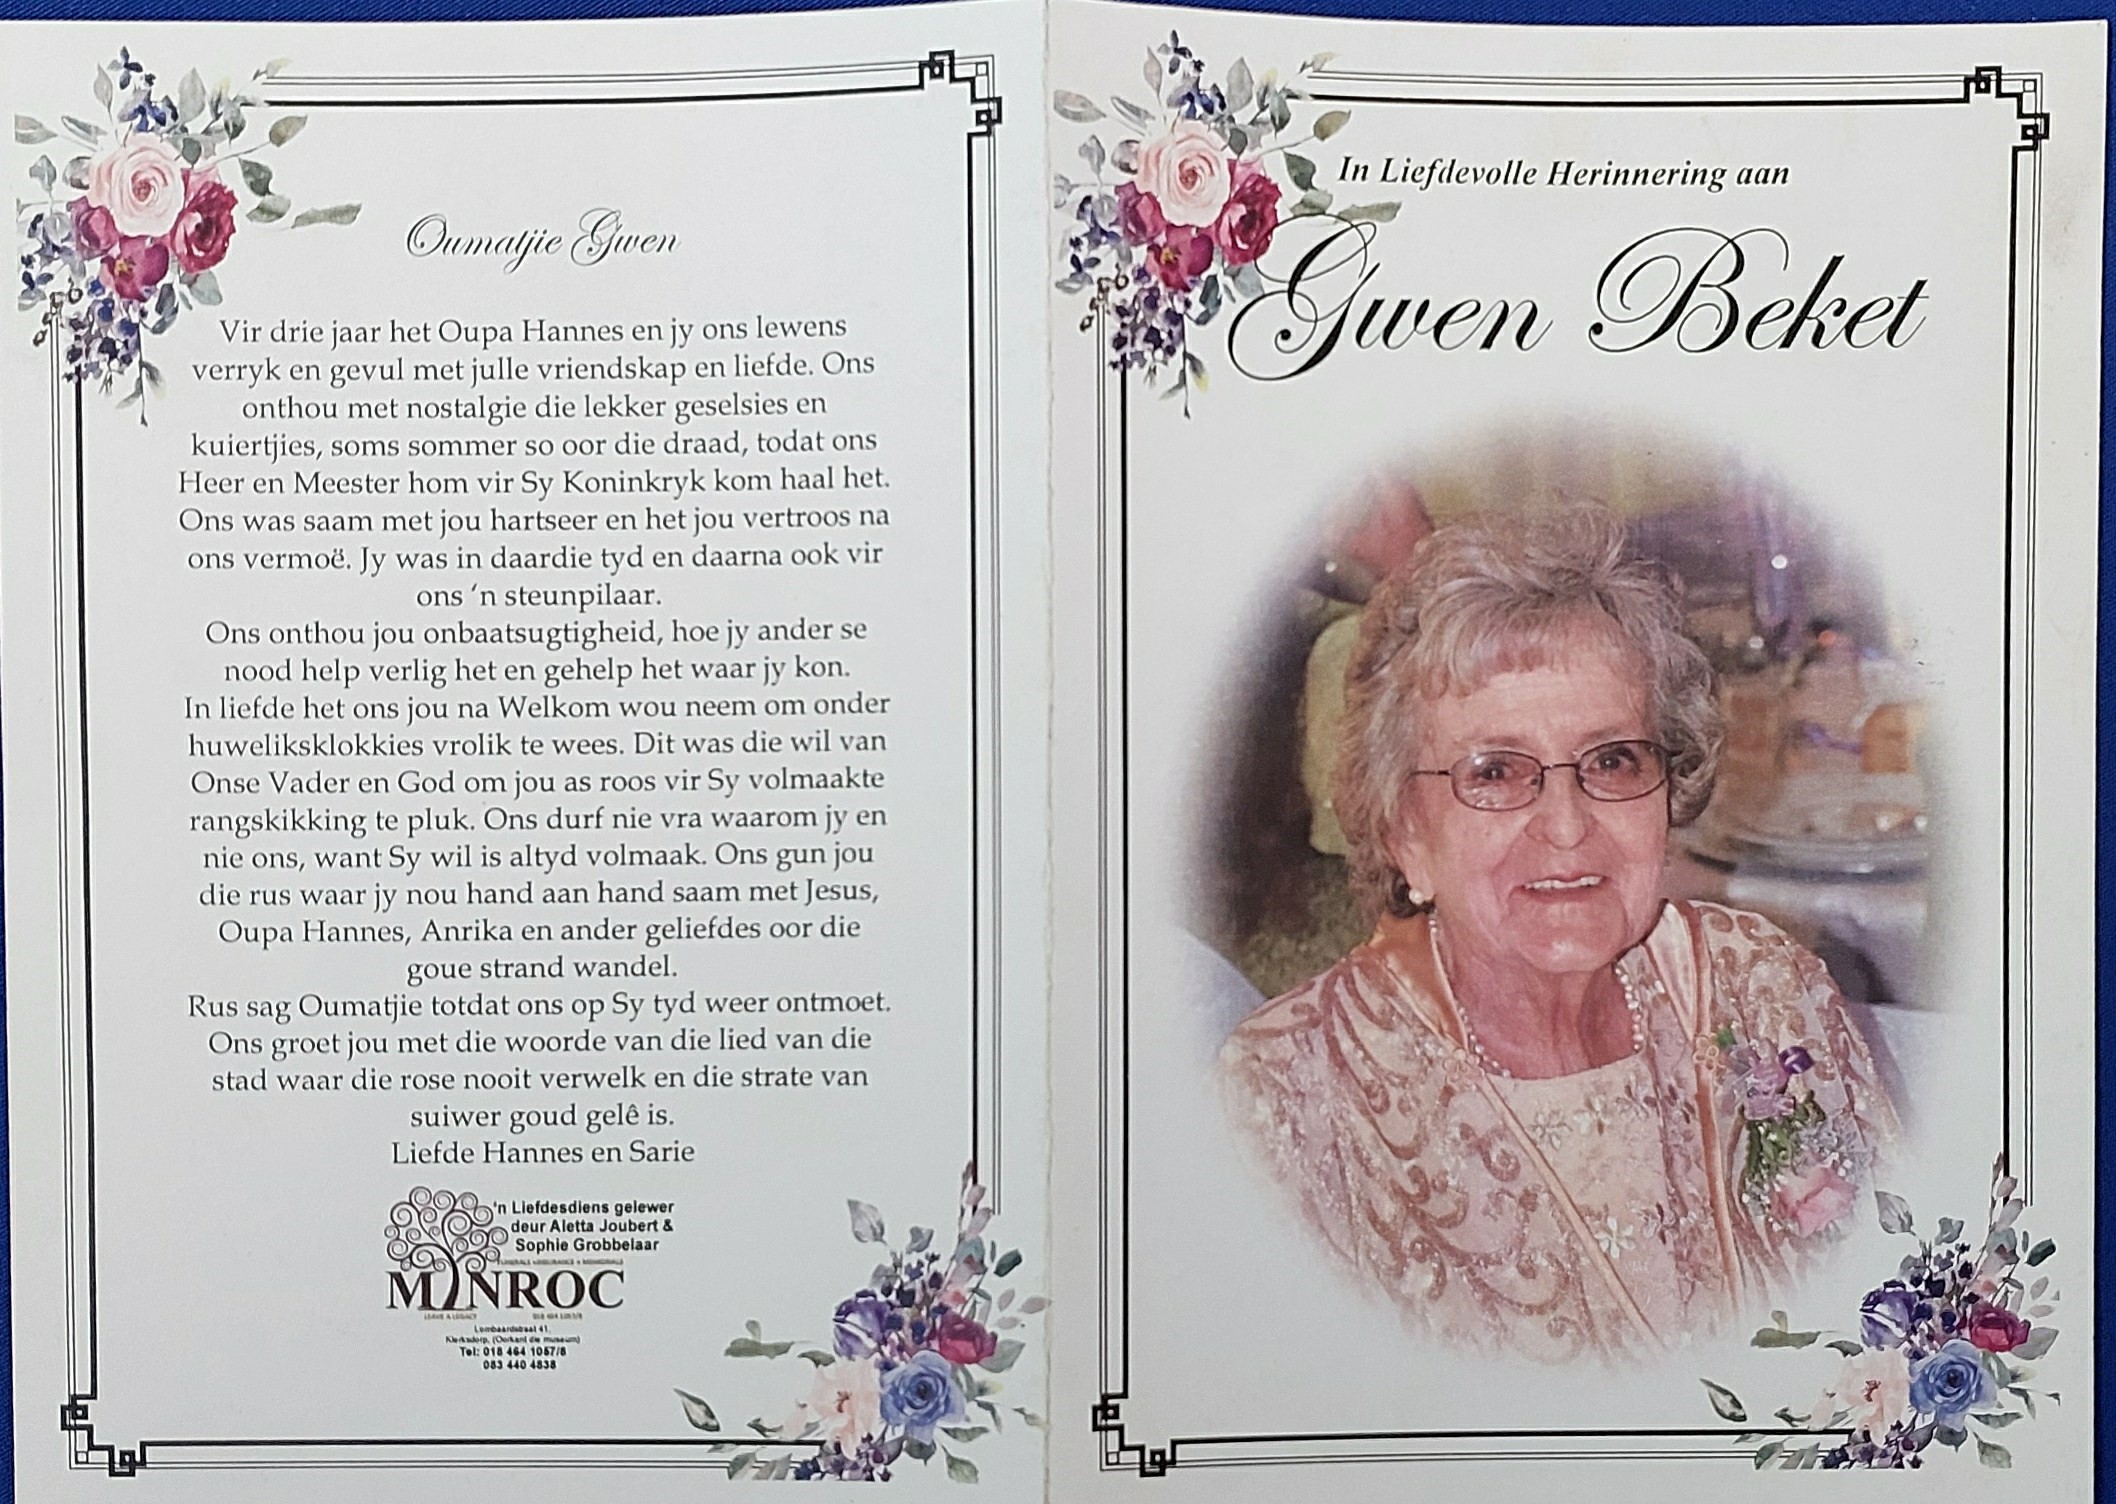 Oumatjie Gwen
Vir drie jaar het Oupa Hannes en jy ons lewens
verryk en gevul met julle vriendskap en liefde. Ons
onthou met nostalgie die lekker geselsies en
kuiertjies, soms sommer so oor die draad, todat ons
Heer en Meester hom vir Sy Koninkryk kom haal het.
Ons was saam met jou hartseer en het jou vertroos na
ons vermoë. Jy was in daardie tyd en daarna ook vir
ons ‘n steunpilaar.
Ons onthou jou onbaatsugtigheid, hoe jy ander se
nood help verlig het en gehelp het waar jy kon.
In liefde het ons jou na Welkom wou neem om onder
huweliksklokkies vrolik te wees. Dit was die wil van
Onse Vader en God om jou as roos vir Sy volmaakte
rangskikking te pluk. Ons durf nie vra waarom jy en
nie ons, want Sy wil is altyd volmaak. Ons gun jou
die rus waar jy nou hand aan hand saam met Jesus,
Oupa Hannes, Anrika en ander geliefdes oor die
goue strand wandel.
Rus sag Oumatjie totdat ons op Sy tyd weer ontmoet.
Ons groet jou met die woorde van die lied van die
stad waar die rose nooit verwelk en die strate van
suiwer goud gelê is.
Liefde Hannes en Sarie
'n Liefdesdiens gelewer
deur Aletta Joubert &
Sophie Grobbelaar
MINROC
LEAVE A LEGACY
Lombaardstraat 41,
Klerksdorp, (Oorkant die museum)
Tel: 018 464 1057/8
083 440 4838
In Liefdevolle Herinnering aan
Gwen Beket